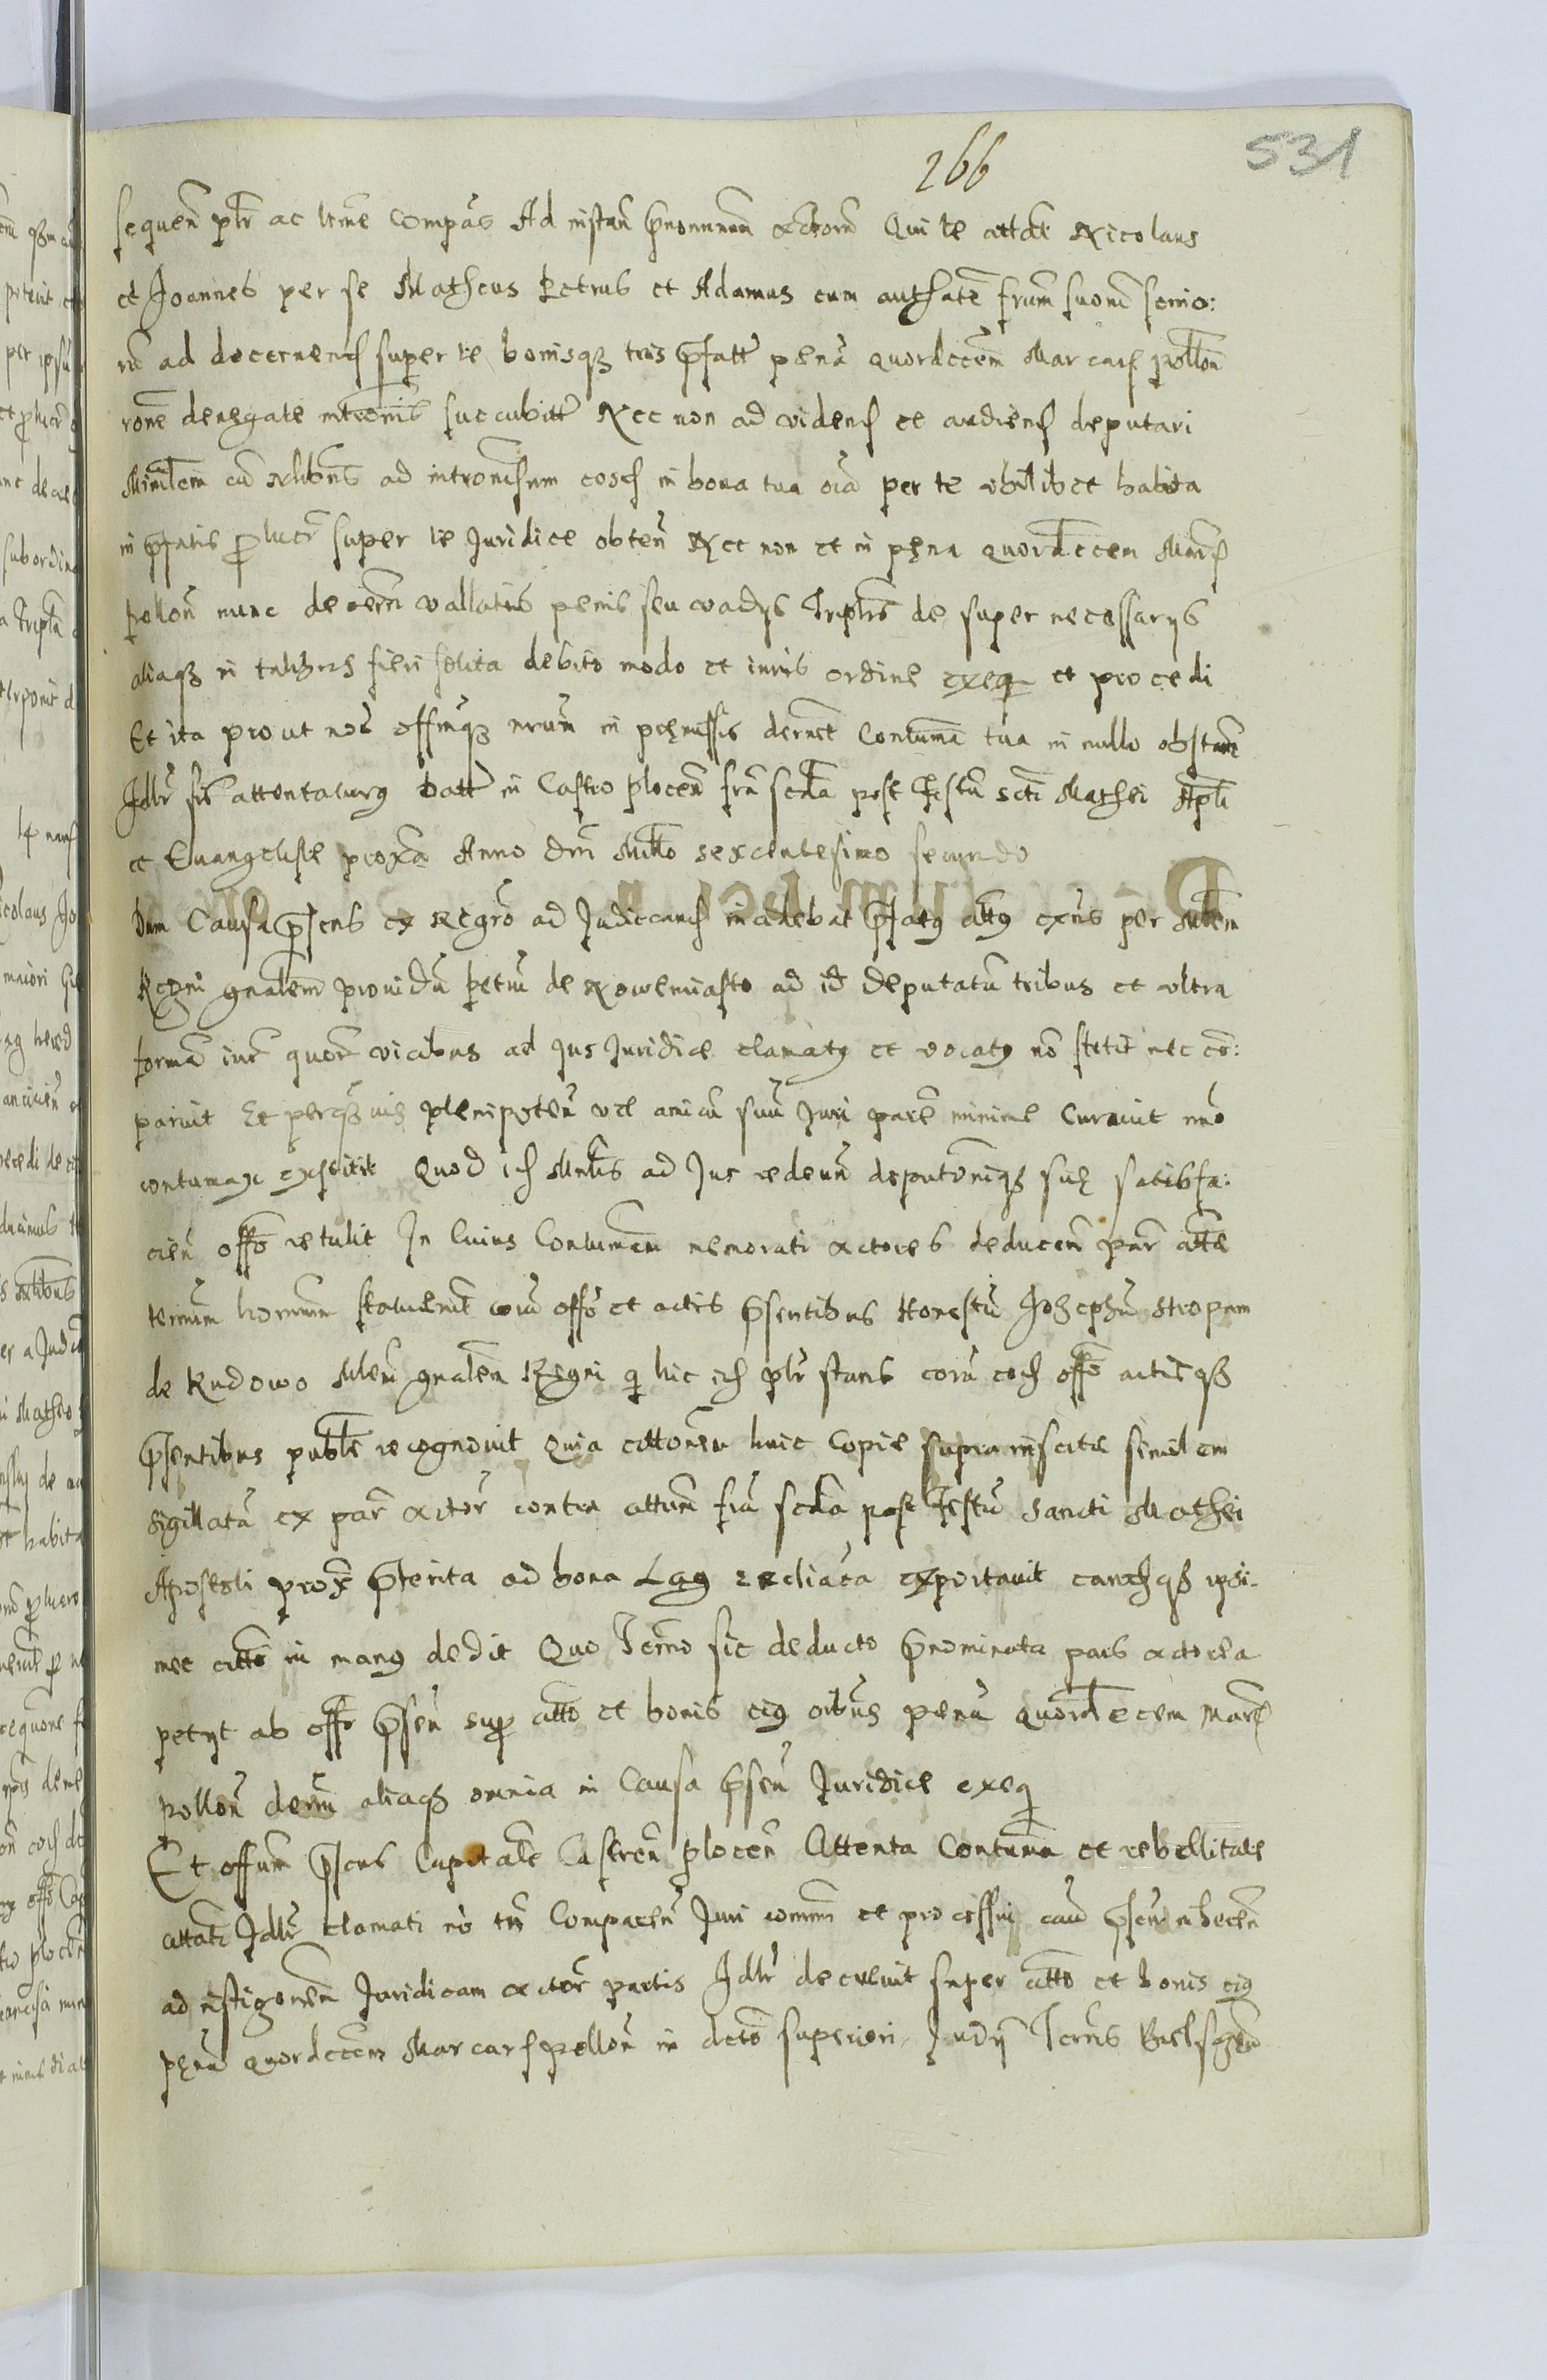 266
531
sequen pltr ac ltime Compās Ad instan p̄nominum Actorū Qui te attāt Nicolaus
et Joannes per se Matheus Petrus et Adamus cum authatē frūm suorū senio:
rū ad decernend super te bonisqȝ tuis p̄fattr penā quordecēm Marcarū pollōn
rōne denegate intromīs succubittr Nec non ad videnđ et audienđ deputari
Minrlem cū nlibus ad intromissum eosđ in bona tua oīa per te vbilibet habita
in p̄fatis p lucr super te Juridice obten Nec non et in pęna quordecem Marc
pollon nunc decern vallatis penis seu vadys Triplrs de super necessarys
aliaqȝ in talibus fieri solita debito modo et iuris ordine exeq et procedi
Et ita prout nos offmqȝ nrum in pręmissis dernet Contumā tua in nullo obstant
Jdlr sis attentaturg Datt in Castro plocen frā scda post Festū scti Mathei Apłi
et Euangeliste proxā Anno dnī Millō sexcentesimo secundo
Dum Causa p̄sens ex Regrō ad Judiccand incidebat p̄fatg attg exns per Mlem
Regni gnalem prouidū petrū de Nowemiasto ad id deputatū tribus et vltra
formā iur quor vicibus ad Jus Juridice clamatg et vocatg nō stetit nec cō:
paruit Et perqȝuis plenipoten vel amicū suū Juri parē minime curauit imo
contumax exstitit Quod iđ Mnlis ad Jus redeun deputōniqȝ suę satisfa:
cien offō retulit In Cuius Contumām memorati Actores deducen par attē
ternum hornum statuerūt corā offō et actis p̄sentibus Honestū Josephū Stropam
de Rudowo Mlen gnalem Regni q hic iđ pltr stans corā eođ offō actisqȝ
p̄sentibus publtē recognouit Quia cittonem huic Copie suprainscrtę similem
sigillatā ex par Actor contra attum frā scda post Festū Sancti Mathei
Apostoli prox p̄terita ad bona Lag ... exportauit eandqȝ ipsi-
met attō in mang dedit Quo Termo sic deducto p̄nominata pars Actorea
petyt ab offō p̄sen sup attō et bonis eig oibus penā quordecem Marc
pollon dernī aliaqȝ omnia in Causa p̄sen Juridice exeq
Et offum p̄sens Capitale Castren plocen Attenta Contumā et rebellitate
attati Jdlr clamati nō tn Comparen Juri commi et processui cau p̄sen inheren
ad instigōnem Juridicam Actor partis Jdlr decreuit super attō et bonis eig
pęnā quordecem Marcarū pollon in dctō superiori Judy Terris